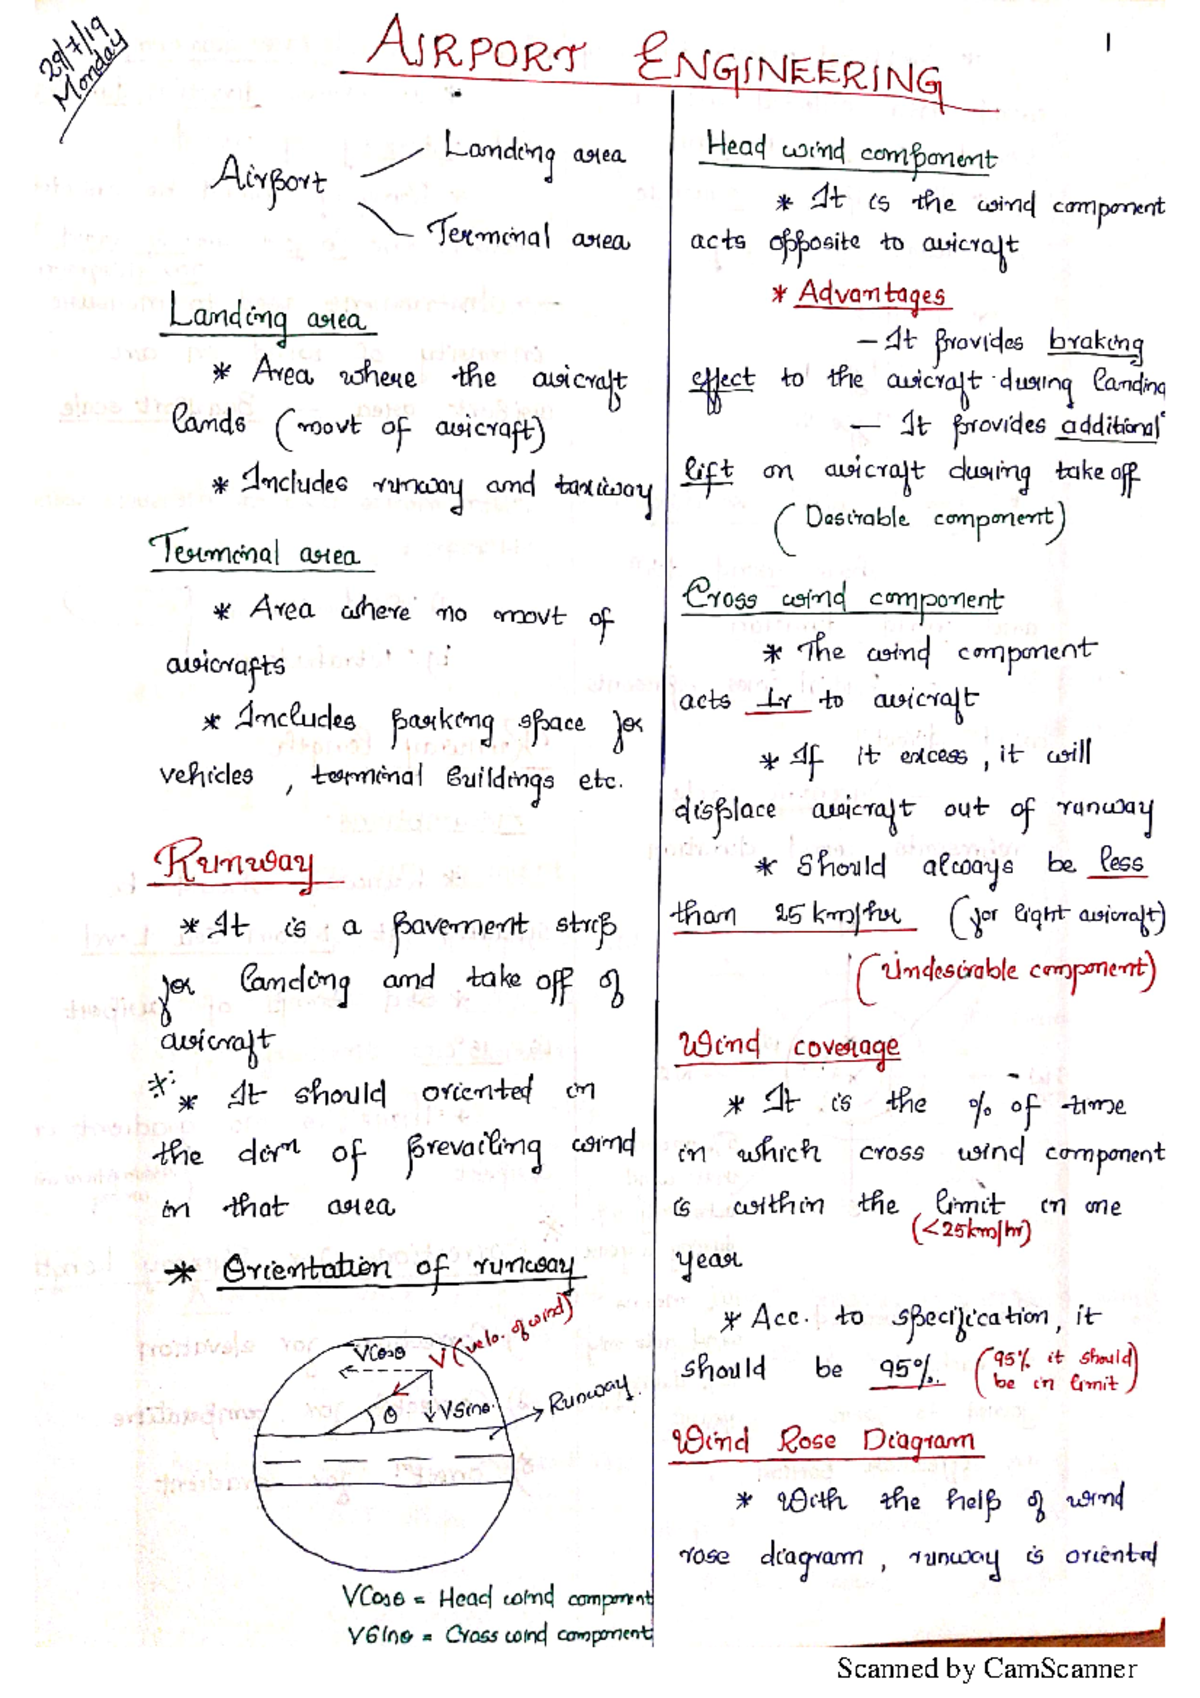 29/7/19
Monday
AIRPORT ENGINEERING
1
Airport
Landing area
Terminal area
Landing area
* Area where the aircraft
lands (movt of aircraft)
* Includes runway and taxiway
Terminal area
* Area where no movt of
aircrafts
* Includes parking space for
vehicles, terminal buildings etc.
Runway
* It is a pavement strip
for landing and take off of
aircraft
* * It should oriented in
the dirn of prevailing wind
in that area
* Orientation of runway
VCosθ
V (velo. of wind)
θ
VSinθ.
Runway.
VCosθ = Head wind component
VSinθ = Cross wind component
Head wind component
* It is the wind component
acts opposite to aircraft
* Advantages
- It provides braking
effect to the aircraft during landing
- It provides additional
lift on aircraft during take off
(Desirable component)
Cross wind component
* The wind component
acts ⊥r to aircraft
* If it excess, it will
displace aircraft out of runway
* Should always be less
than 25 km/hr (for light aircraft)
(Undesirable component)
Wind coverage
* It is the % of time
in which cross wind component
is within the limit in one
(<25km/hr)
year
* Acc. to specification, it
should be 95%. (95% it should
be in limit)
Wind Rose Diagram
* With the help of wind
rose diagram, runway is oriented
Scanned by CamScanner